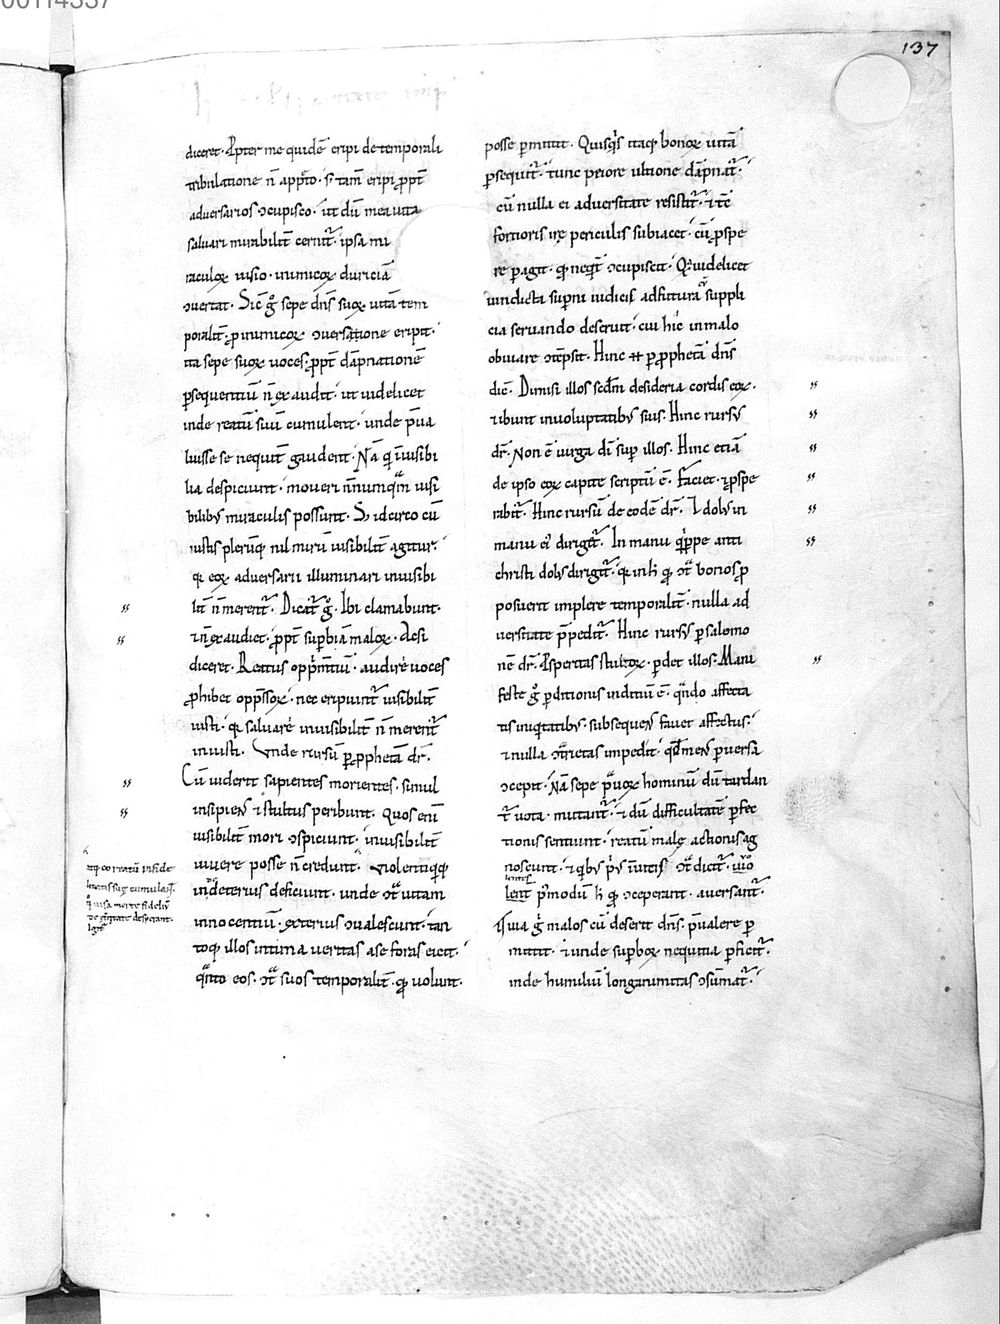 00114337
137
diceret. Ꝓpter me quidē eripi de temporali
tribulatione n̄ appeto. s; tam̄ eripi ꝓpt̄
aduersarios ɔcupisco. ut dū mea uita
saluari mirabilit̄ cernit̄. ipsa mi
raculoꝝ uisio. inimicoꝝ duriciā
ɔuertat. Sic̄ g̊ sepe dn̄s suoꝝ uitā tem
poralit̄. ꝓ inimicoꝝ ɔuersatione eripit.
ita sepe suoꝝ uoces. ꝓpt̄ dāpnationē
ꝑsequentiū n̄ exaudit. ut uidelicet
inde reatū suū cumulent. unde p̄ua
luisse se nequit̄ gaudent. Nā qi inuisibi
lia despiciunt. moueri nn̄umqm̄ uisi
bilibꝰ miraculis possunt. S; idcirco cū
iustis plerūq; nil mirū uisibilit̄ agitur.
qi eoꝝ aduersarii illuminari inuisibi
lit̄ n̄ merent̄. Dicat̄ g̊. Ibi clamabunt.
⁊ n̄ exaudiet. ꝓpt̄ suꝑbiā maloꝝ. Acsi
diceret. Reatus opprimentiū. audire uoces
ꝓhibet opp̄ssoꝝ. nec eripiunt̄ uisibilit̄
iusti. qi saluare inuisibilit̄ n̄ merent̄
iniusti. Unde rursū ꝑ ꝓphetā dr̄.
Cū uiderit sapientes morientes. simul
insipiens ⁊ stultus peribunt. Quos enī
uisibilit̄ mori ɔspiciunt. inuisibilit̄
uiuere posse n̄ credunt. uiolentiq;
in deterius deficiunt. unde ɔtͣ uitam
innocentiū. exterius ɔualescunt. tan
toq; illos intima ueritas a se foras eicit.
qͣnto eos. ɔtͣ suos temporalit̄. qd̄ uolunt.
reatū infide
litatis sue cumulāt.
uisa morte fidelis
de desperant.
posse ꝑmittit. Quisqis itaq; bonoꝝ uitā
ꝑsequit̄. tunc peiore ultione dāpnat̄.
cū nulla ei aduersitate resistit̄. ⁊ tc̄
fortioris ire periculis subiacet. cū ꝓspe
re ꝑagit. qd̄ neqit̄ ɔcupiscit. Quē uidelicet
uindicta suꝑni iudicis ad futura suppli
cia seruando deseruit. cui hic in malo
obuiare ɔtēpsit. Hinc ē ꝑ ꝓphetā dn̄s
dic̄. Dimisi illos scdm̄ desideria cordis eoꝝ.
⁊ ibunt in uoluptatibꝰ suis. Hinc rursꝰ
dr̄. Non ē uirga di̅ suꝑ illos. Hinc etiā
de ipso eoꝝ capite scriptū ē. Faciet. ⁊ ꝓspe
rabit̄. Hinc rursū de eodē dr̄. Dolus in
manu eiꝰ diriget̄. In manu qippe anti
christi dolus dirigit̄. qi in h̄ qd̄ ɔtͣ bonos ꝓ
posuerit implere temporalit̄. nulla ad
uersitate p̄pedit̄. Hinc rursꝰ ꝑ salomo
nē dr̄. Ꝓsperitas stultoꝝ. ꝑdet illos. Mani
feste g̊ ꝑditionis inditiū ē. qͣndo affecta
tis iniqitatibꝰ. subsequens fauet affectus.
⁊ nulla ɔtrarietas impedit. qd̄ mens ꝑuersa
ɔcepit. Nā sepe prauoꝝ hominū dū tardan
t̄ uota. mutant̄. ⁊ dū difficultatē ꝑfec
tionis sentiunt. reatū male actionis ag
noscunt. ⁊ qibꝰ priꝰ inuitis ɔtͣdicit̄. uio
lent̄ p̄modū h̄ qd̄ ɔceperant. auersant̄.
Qua g̊ malos cū deserit dn̄s. p̄ualere ꝑ
mittit. ⁊ unde suꝑboꝝ nequitia ꝑficit̄.
inde humiliū longanimitas ɔsūmat̄.